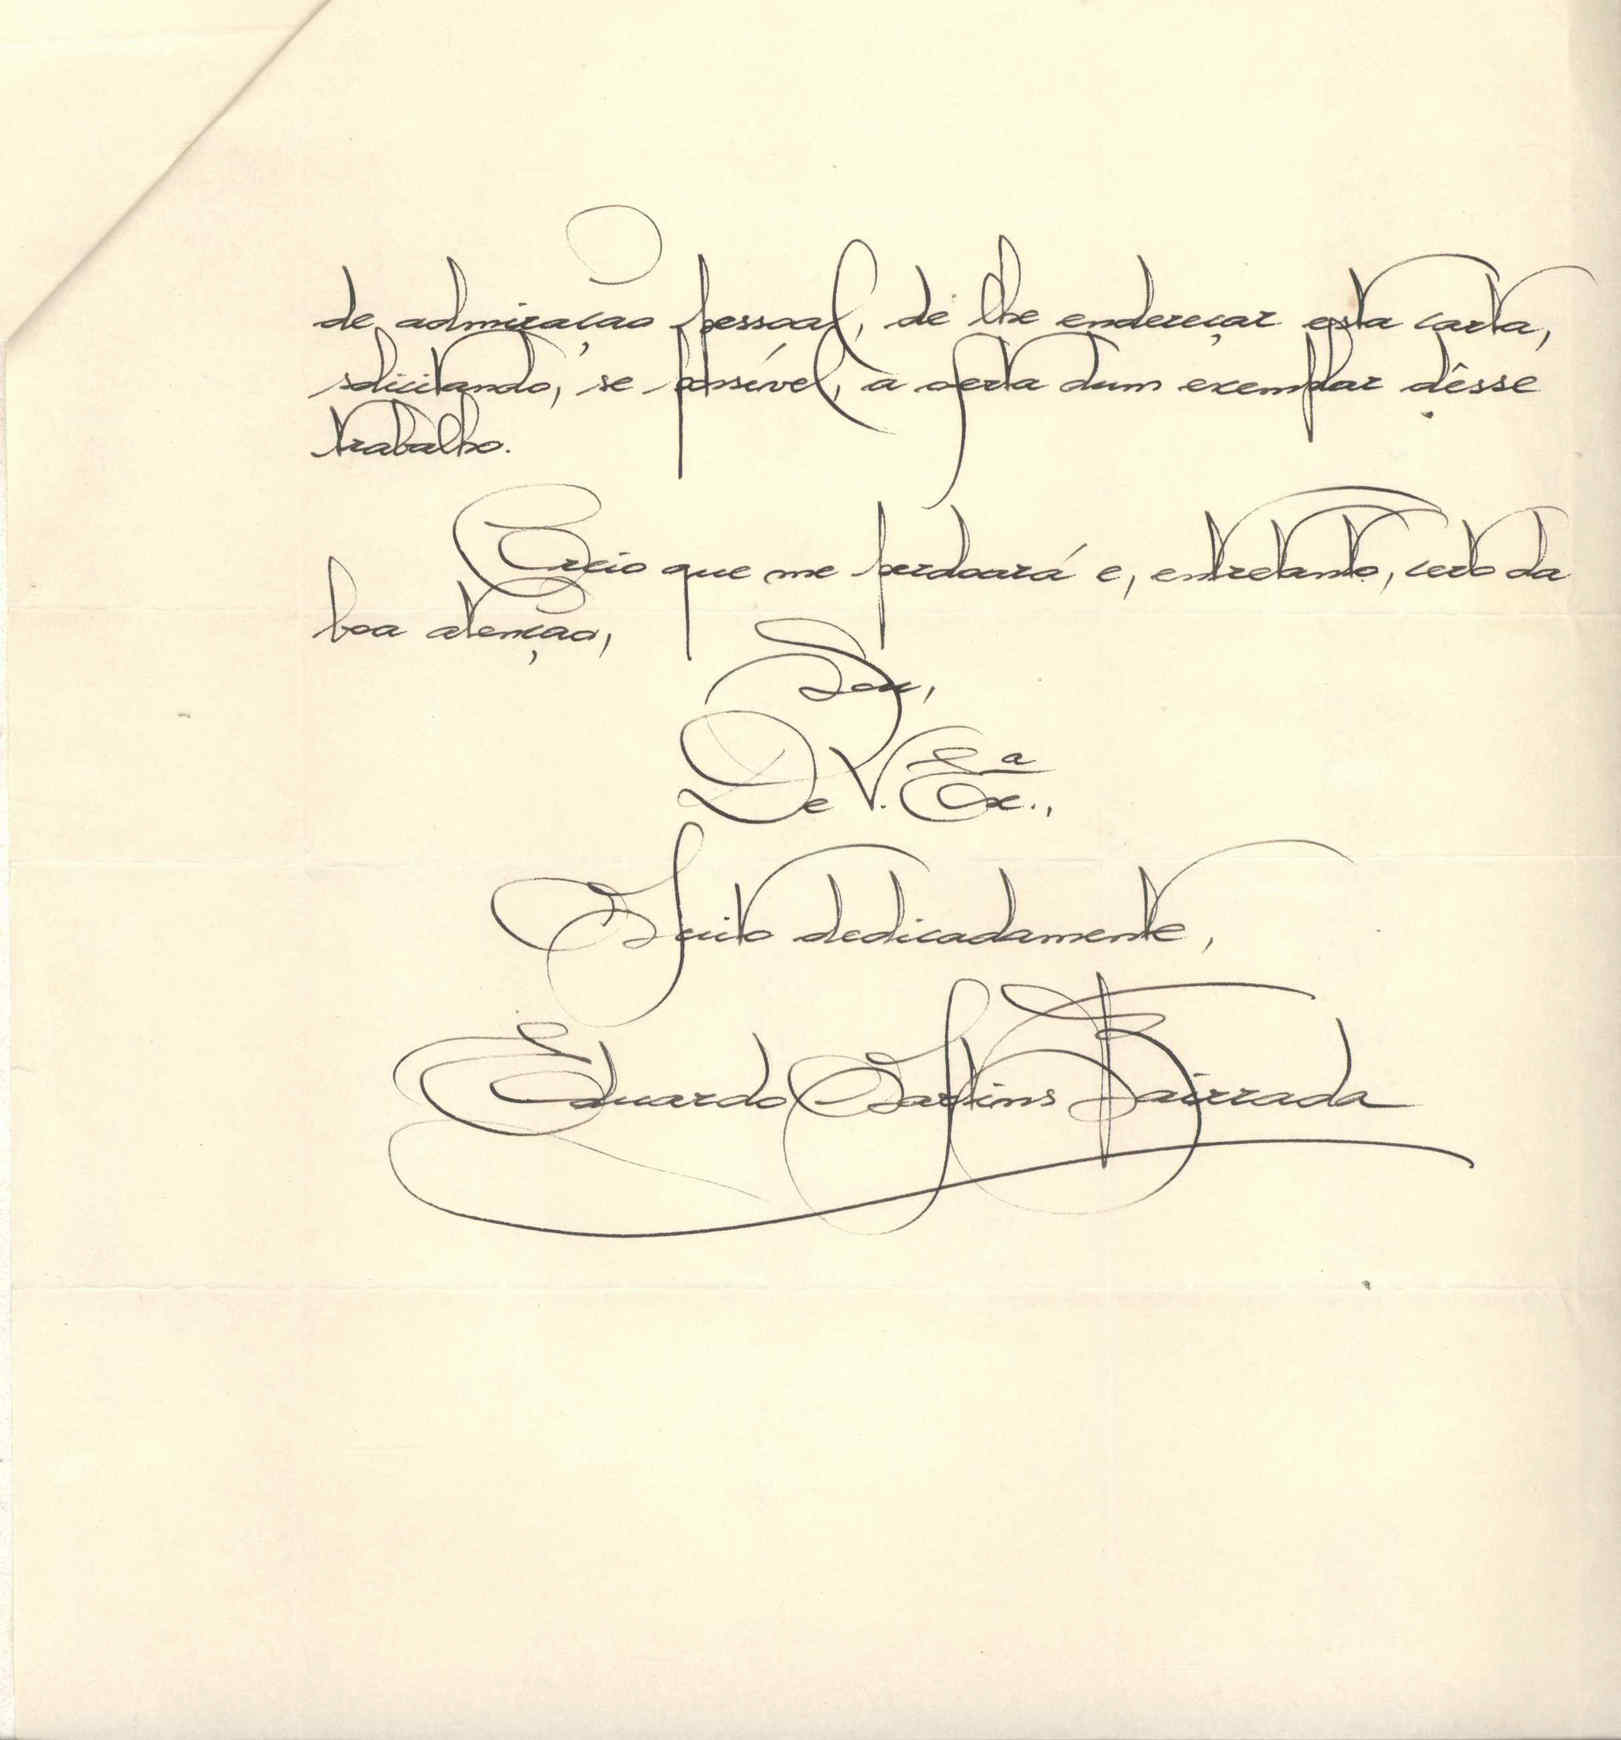 de admiração pessoal, de lhe endereçar esta carta,
solicitando, se possível, a oferta dum exemplar dêsse
trabalho.
Creio que me perdoará e, entretanto, certo da
boa atenção,
Sou,
De V. Ex.ª,
Muito dedicadamente,
Eduardo Martins Bairrada